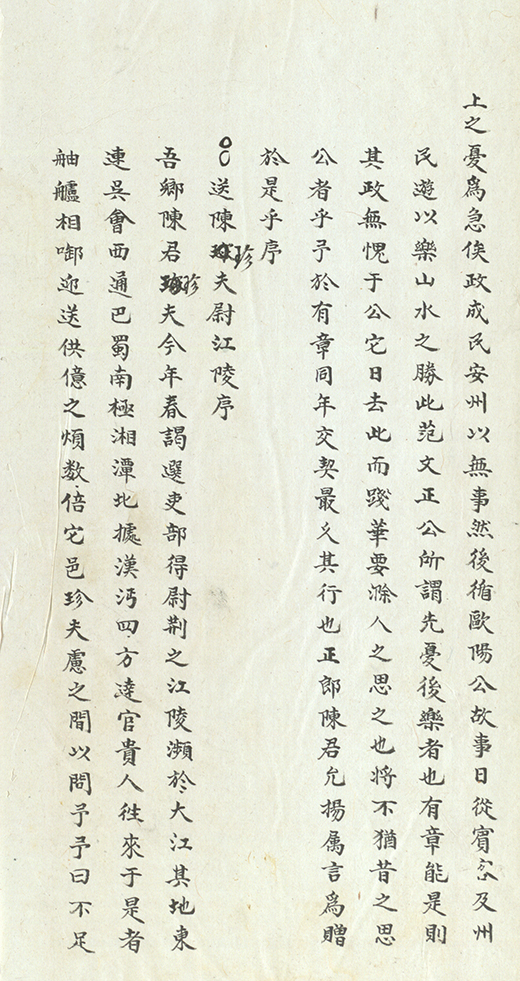 上之憂爲急俟政成民安州以無事然後循歐陽公故事日從賓客及州
民遊以樂山水之勝此范文正公所謂先憂後樂者也有章能是則
其政無愧于公它日去此而踐華要滁人之思之也将不猶昔之思
公者乎予於有章同年交契最久其行也正郎陳君允揚属言爲贈
於是乎序
送陳珍夫尉江陵序
吾鄉陳君珍夫今年春謁選吏部得尉荆之江陵濒於大江其地東
連吳會西通巴蜀南極湘潭北據漢沔四方達官貴人徃來于是者
舳艫相啣迎送供億之煩数倍它邑珍夫慮之間以問予予曰不足